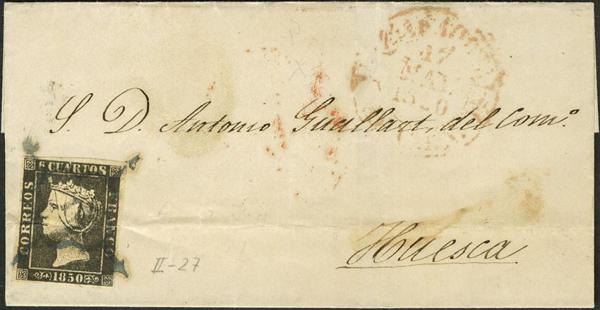 17
1850
S. D. Antonio Guallart, del Comº.
6 CUARTOS
CORREOS
FRANCO
1850
Huesca
II-27